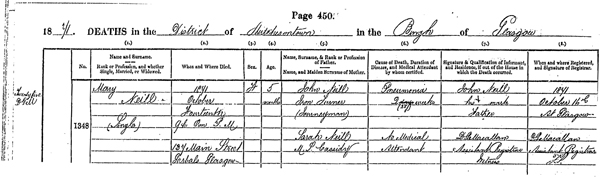 Page 450.
1871. DEATHS in the District of Hutchesontown in the Burgh of Glasgow
(1.) (2.) (3.) (4.) (5.) (6.) (7.) (8.)
No.
Name and Surname.
Rank or Profession, and whether Single, Married, or Widowed.
When and Where Died.
Sex.
Age.
Name, Surname, & Rank or Profession of Father.
Name, and Maiden Surname of Mother.
Cause of Death, Duration of Disease, and Medical Attendant by whom certified.
Signature & Qualification of Informant, and Residence, if out of the House in which the Death occurred.
When and where Registered, and Signature of Registrar.
1348
Mary
Neill
(Single)
1871
October
Fourteenth
P. M.
137 Main Street
Gorbals Glasgow
F
5
months
John Neill
Iron Turner
(Journeyman)
Sarah Neill
M. S. Cassidy
Pneumonia
weeks
No Medical
Attendant
John Neill
his
mark
Father
Assistant Registrar
Witness
1871
October 16th
At Glasgow
Assistant Registrar